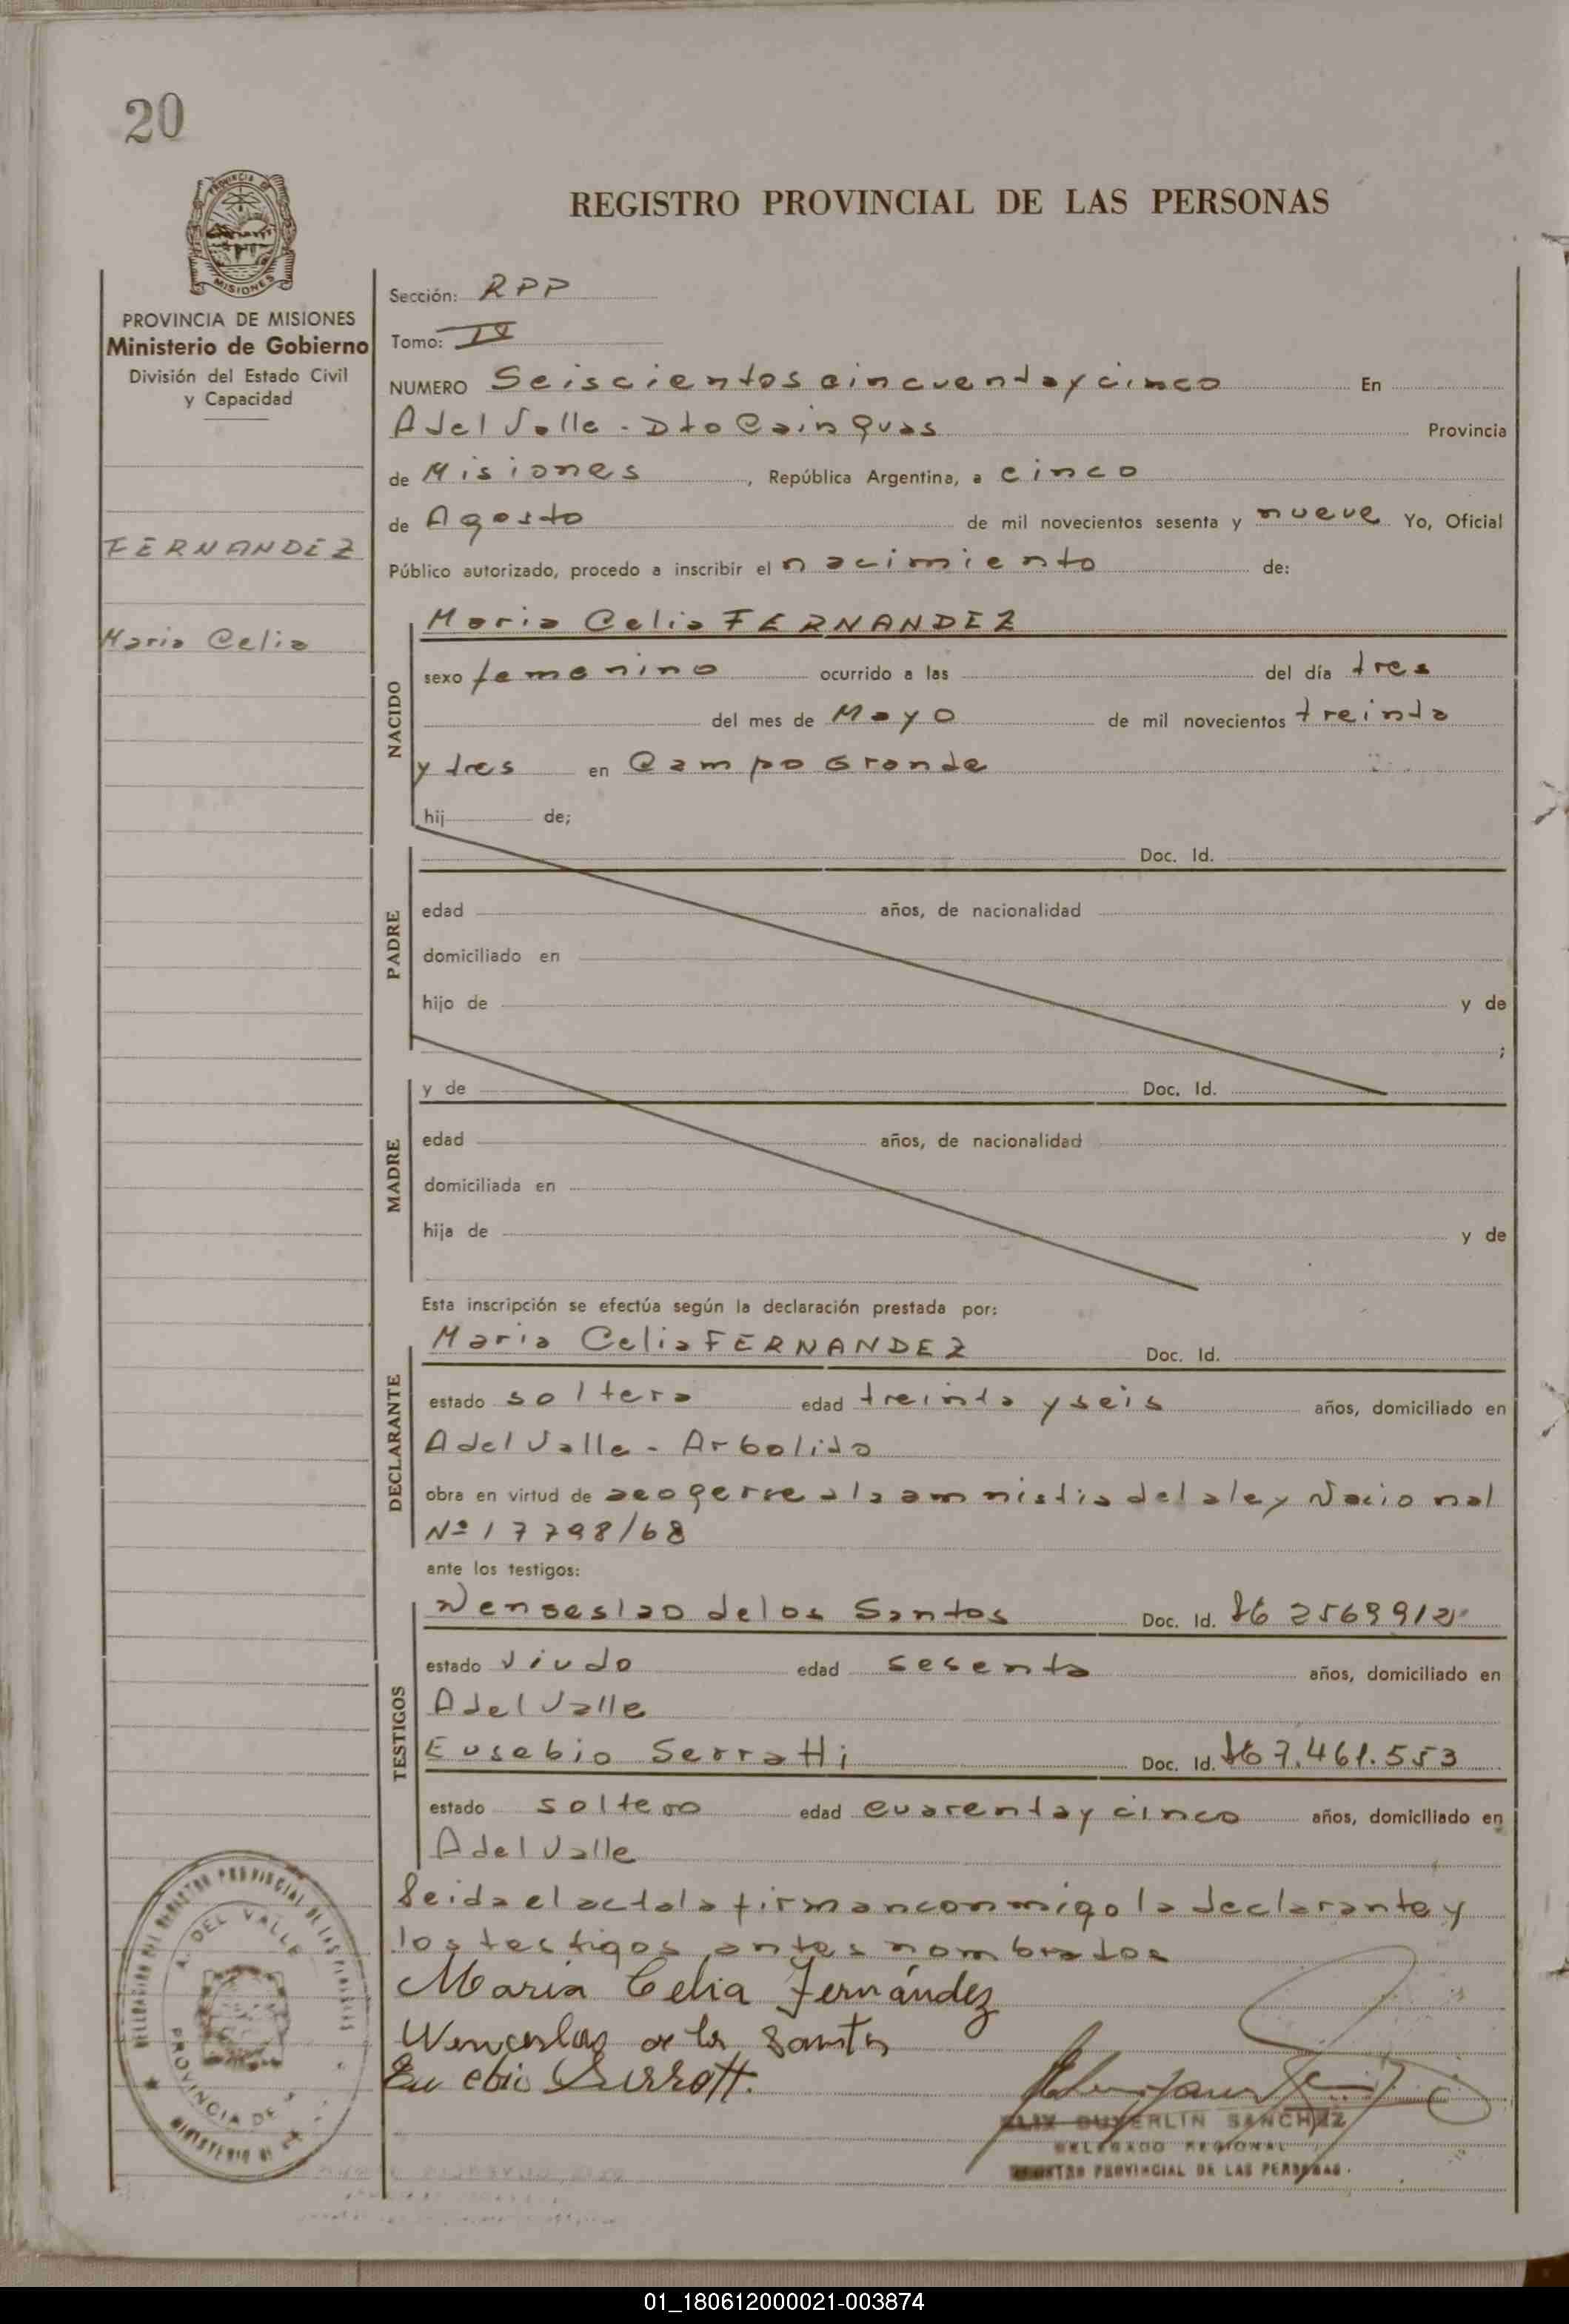 20
REGISTRO PROVINCIAL DE LAS PERSONAS
PROVINCIA DE MISIONES
Ministerio de Gobierno
División del Estado Civil
y Capacidad
FERNANDEZ
Maria Celia
Sección: RPP
Tomo: IV
NUMERO Seiscientos cincuenta y cinco En
A del Valle - Dto Cainguas Provincia
de Misiones, República Argentina, a cinco
de Agosto de mil novecientos sesenta y nueve Yo, Oficial
Público autorizado, procedo a inscribir el nacimiento de:
NACIDO
Maria Celia FERNANDEZ
sexo femenino ocurrido a las del día tres
del mes de Mayo de mil novecientos treinta
y tres en Campo Grande
hij de;
PADRE
Doc. Id.
edad años, de nacionalidad
domiciliado en
hijo de y de
;
MADRE
y de Doc. Id.
edad años, de nacionalidad
domiciliada en
hija de y de
Esta inscripción se efectúa según la declaración prestada por:
DECLARANTE
Maria Celia FERNANDEZ Doc. Id.
estado soltera edad treinta y seis años, domiciliado en
A del Valle - Arbolito
obra en virtud de acogerse a la amnistia de la ley Nacional
Nº 17798/68
ante los testigos:
TESTIGOS
Wenseslao de los Santos Doc. Id. 2569912
estado viudo edad sesenta años, domiciliado en
A del Valle
Eusebio Serratti Doc. Id. 7.461.553
estado soltero edad cuarenta y cinco años, domiciliado en
A del Valle
Leida el acta la firman conmigo la declarante y
los testigos antes nombrados
Maria Celia Fernández
Wenceslao de los Santos
Eusebio Serratti
DUYERLIN SANCHEZ
DELEGADO REGIONAL
REGISTRO PROVINCIAL DE LAS PERSONAS.
DELEGACION DEL REGISTRO PROVINCIAL DE LAS PERSONAS
A. DEL VALLE
PROVINCIA DE
MINISTERIO DE
01_180612000021-003874